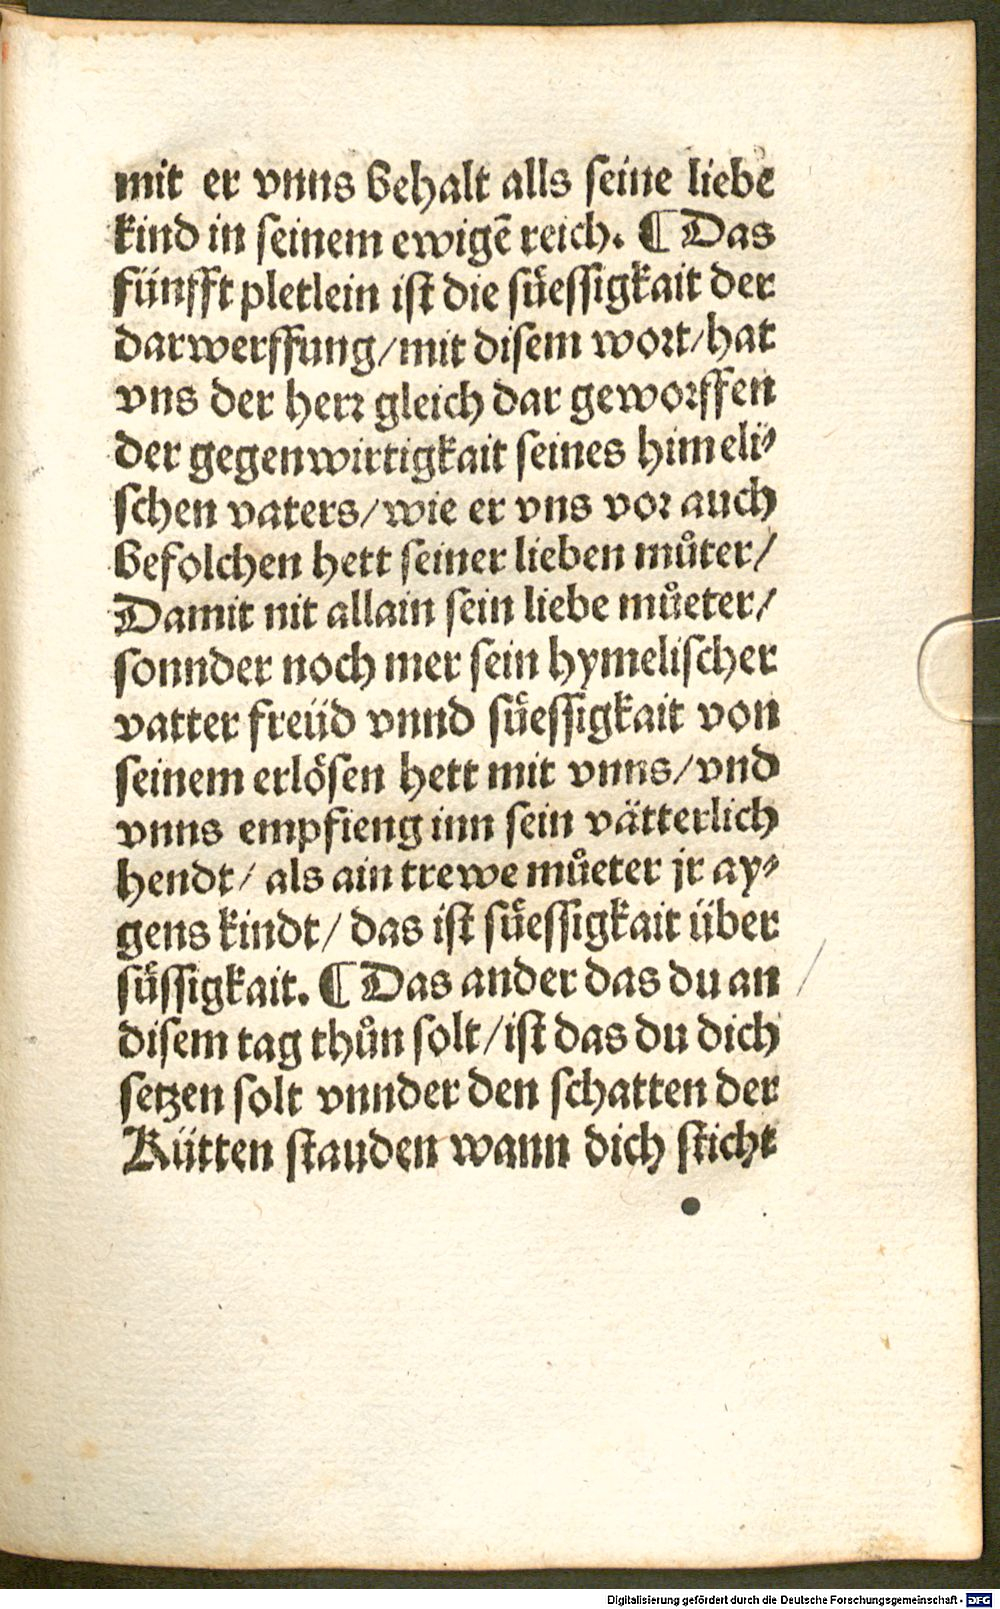 mit er vnns behalt alls seine liebe
kind in seinem ewigē reich. ¶ Das
fünfft pletlein ist die süessigkait der
darwerffung/mit disem wort/hat
vns der herr gleich dar geworffen
der gegenwirtigkait seines himeli-
schen vaters/wie er vns vor auch
befolchen hett seiner lieben můter/
Damit nit allain sein liebe můeter/
sonnder noch mer sein hymelischer
vatter freüd vnnd süessigkait von
seinem erlösen hett mit vnns/vnd
vnns empfieng inn sein vätterlich
hendt/ als ain trewe můeter jr ay-
gens kindt/ das ist süessigkait über
süssigkait. ¶ Das ander das du an
disem tag thůn solt/ist das du dich
setzen solt vnnder den schatten der
Kütten stauden wann dich sticht
Digitalisierung gefördert durch die Deutsche Forschungsgemeinschaft - DFG